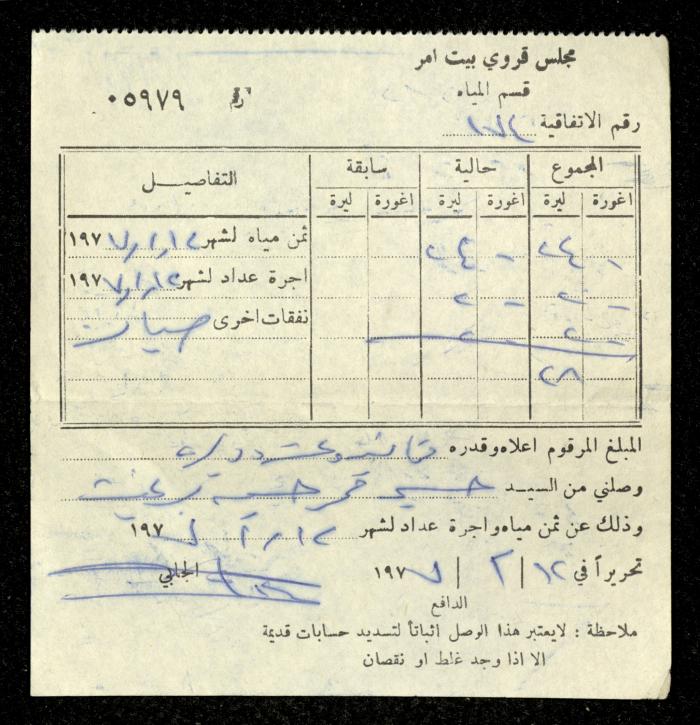 مجلس قروي بيت امر
قسم المياه
رقم ٠٥٩٧٩
رقم الاتفاقية
المجموع حالية سابقة التفاصيــل
اغورة ليرة اغورة ليرة اغورة ليرة
- ٢٤ - ٢٤ ثمن مياه لشهر ١٩٧٧
- ٢ - ٢ اجرة عداد لشهر ١٩٧٧
- ٢ - ٢ نفقات اخرى صيانة
٢٨
المبلغ المرقوم اعلاه وقدره ثمانية وعشرون ليرة
وصلني من السيد
وذلك عن ثمن مياه واجرة عداد لشهر ١٩٧٧
تحريراً في ١٢ / ٢ / ١٩٧٧ الجابي
الدافع
ملاحظة : لايعتبر هذا الوصل اثباتاً لتسديد حسابات قديمة
الا اذا وجد غلط او نقصان